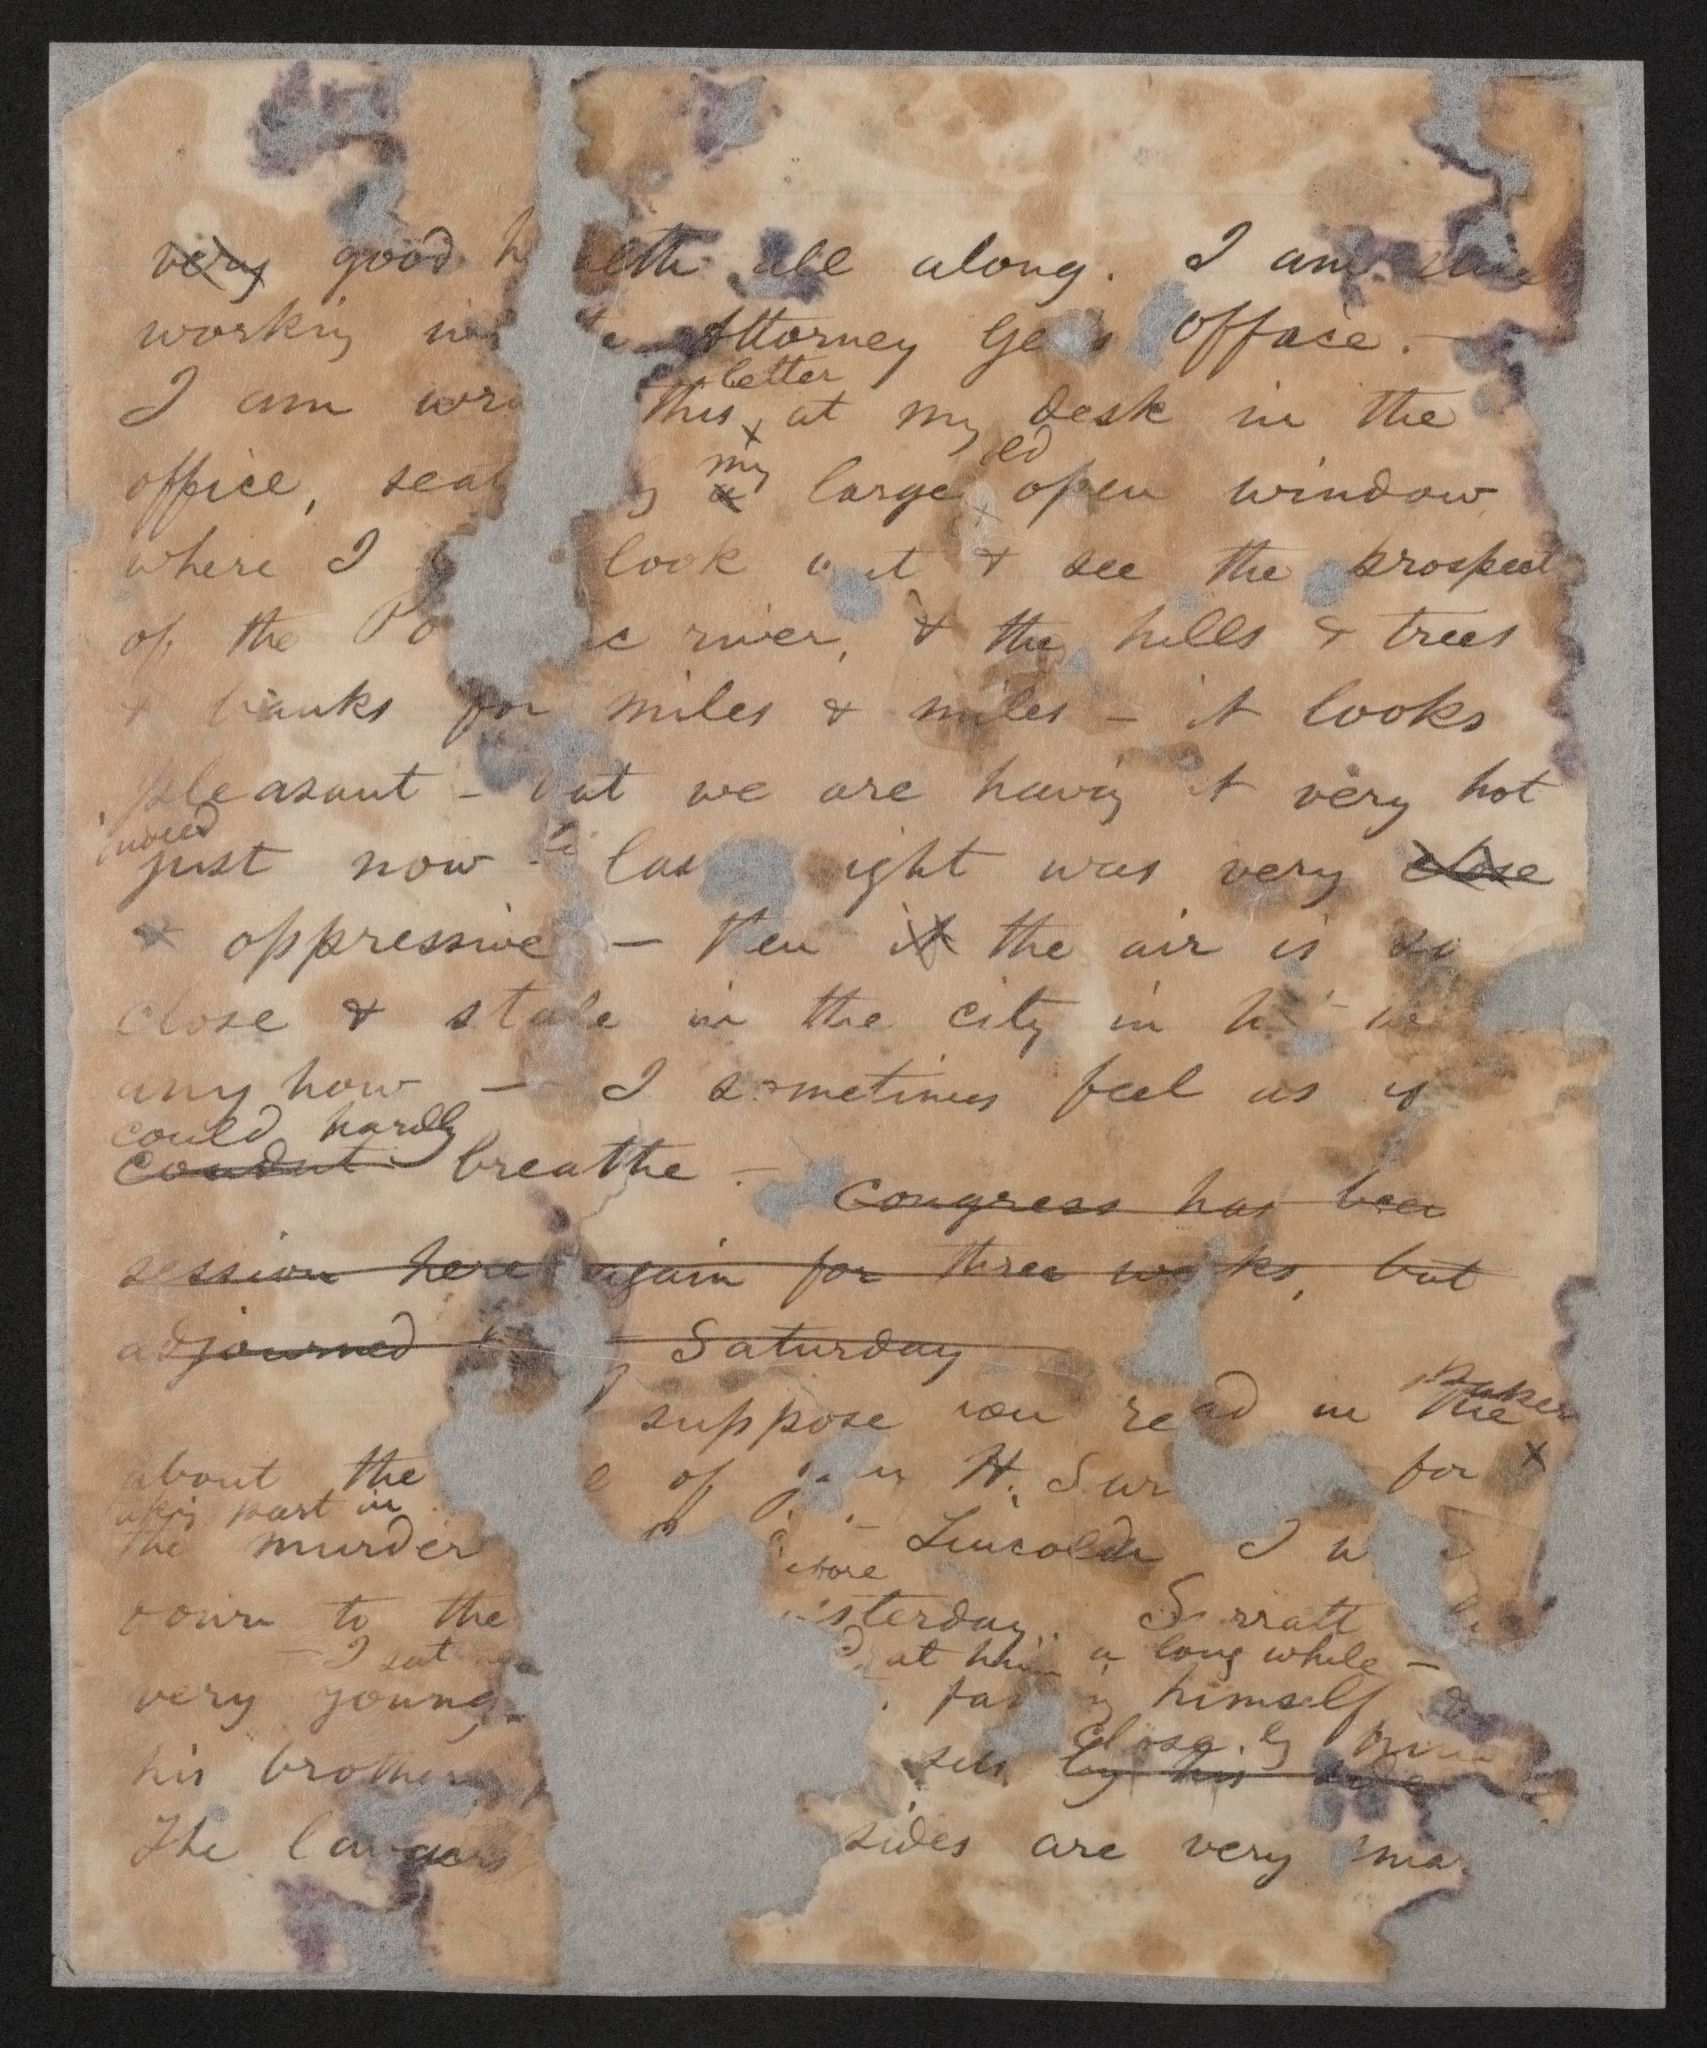 very good h ealth all along. I am still
working in the Attorney Gen's Office. —
better
I am wri this at my desk in the
my ed
office, seat y a large open window,
where I look out & see the prospect
of the Po ic river, & the hills & trees
& banks for miles & miles — it looks
pleasant — but we are having it very hot
indeed
just now — last night was very close
& oppressive — then it the air is so
close & stale in the city in
any how — I sometimes feel as if
could hardly
breathe —
Congress has been
session here again for three weeks, but
adjourned Saturday
papers
suppose you read in the
about the of John H. Sur for
part in
the murder Lincoln I w
down to the yesterday. Surratt
I sat at him a long while —
very young fanning himself &
closely
his brother sits by his side
The lawyers sides are very smar